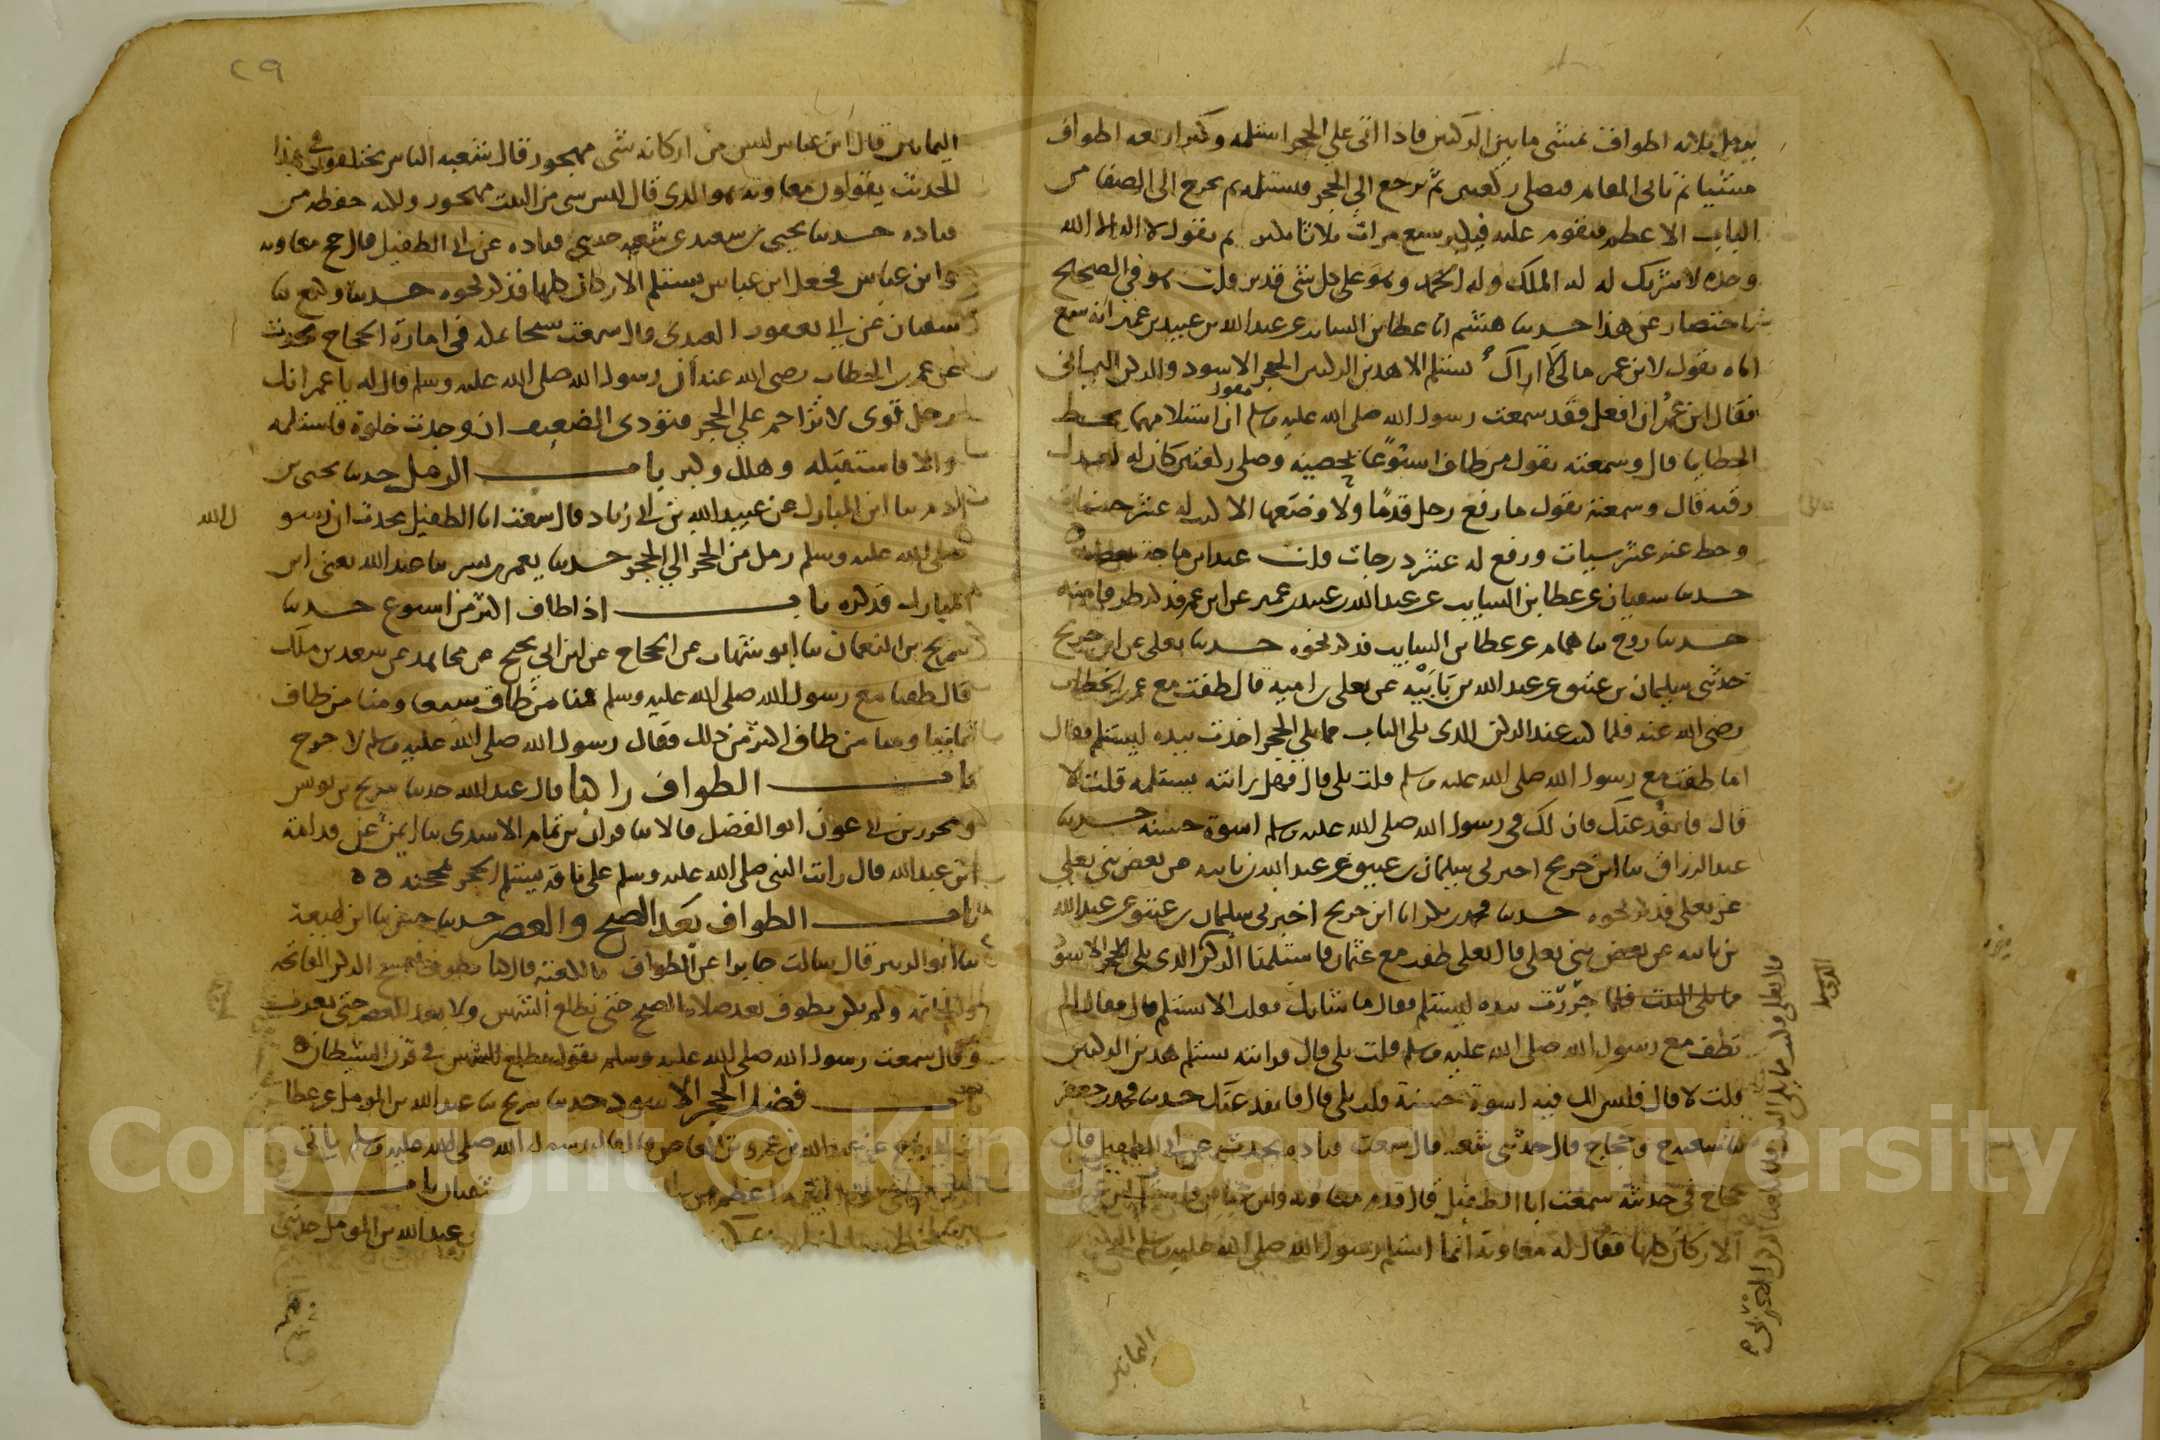 يرمل ثلاثة اطواف يمشي ما بين الركنين فاذا اتى على الحجر استلمه وكبر اربعة اطواف
مشيا ثم ياتي المقام فيصلي ركعتين ثم يرجع الى الحجر فيستلمه ثم يخرج الى الصفا من
الباب الاعظم فيقوم عليه فيكبر سبع مرات ثلاثا يكبر ثم يقول لا اله الا الله
وحده لا شريك له له الملك وله الحمد وهو على كل شي قدير قلت هو في الصحيح
باختصار عن هذا حدثنا هشيم انا عطا بن السايب عن عبد الله بن عبيد بن عمير انه سمع
اباه يقول لابن عمر مالي لا اراك تستلم الا هذين الركنين الحجر الاسود والركن اليماني
فقال ابن عمر ان افعل فقد سمعت رسول الله صلى الله عليه وسلم يقول ان استلامهما يحط
الخطايا قال وسمعته يقول من طاف اسبوعا يحصيه وصلى ركعتين كان له كعدل
رقبة قال وسمعته يقول ما رفع رجل قدما ولا وضعها الا كتب له عشر حسنات
وحط عنه عشر سيات ورفع له عشر درجات قلت عند ابن ماجة بعضه
حدثنا سفيان عن عطا بن السايب عن عبد الله بن عبيد بن عمير عن ابن عمر فذكر طرفا منه
حدثنا روح ثنا همام عن عطا بن السايب فذكر نحوه حدثنا يعلى عن ابن جريج
حدثني سليمان بن عتيق عن عبد الله بن بابيه عن يعلى بن امية قال طفت مع عمر بن الخطاب
رضى الله عنه فلما كنت عند الركن الذي يلي الباب مما يلي الحجر اخذت بيده ليستلم فقال
اما طفت مع رسول الله صلى الله عليه وسلم قلت بلى قال فهل رايته يستلمه قلت لا
قال فانفذ عنك فان لك في رسول الله صلى الله عليه وسلم اسوة حسنة حدثنا
عبد الرزاق ثنا ابن جريج اخبرني سليمان بن عتيق عن عبد الله بن بابيه عن بعض بني يعلى
عن يعلى فذكر نحوه حدثنا محمد بن بكر انا ابن جريج اخبرني سليمان بن عتيق عن عبد الله
بن بابيه عن بعض بني يعلى قال يعلى طفت مع عثمان فاستلمنا الركن الذي يلي الحجر الاسود
مما يلي البيت فلما جررت بيده ليستلم فقال ما شانك فقلت الا تستلم قال فقال الم
تطف مع رسول الله صلى الله عليه وسلم قلت بلى قال فرايته يستلم هذين الركنين
قلت لا قال فليس لك فيه اسوة حسنة قلت بلى قال فانفذ عنك حدثنا محمد بن جعفر
ثنا شعبة ح وحجاج قال حدثني شعبة قال سمعت قتادة يحدث عن ابي الطفيل قال
حجاج في حديثه سمعت ابا الطفيل قال قدم معاوية وابن عباس
الاركان كلها فقال له معاوية انما استلم رسول الله صلى الله عليه وسلم
اليمانيين
٢٩
اليمانيين قال ابن عباس ليس من اركانه شى مهجور قال شعبة الناس يختلفون في هذا
الحديث يقولون معاوية هو الذي قال ليس شى من البيت مهجور ولكنه حفظه من
قتادة حدثنا يحيى بن سعيد عن شعبة حدثني قتادة عن ابي الطفيل قال حج معاوية
وابن عباس فجعل ابن عباس يستلم الاركان كلها فذكر نحوه حدثنا وكيع ثنا
سفيان عن ابي يعفور العبدي قال سمعت شيخا بمكة في امارة الحجاج يحدث
عن عمر بن الخطاب رضى الله عنه أن رسول الله صلى الله عليه وسلم قال له يا عمر انك
رجل قوى لا تزاحم على الحجر فتؤذي الضعيف ان وجدت خلوة فاستلمه
والا فاستقبله وهلل وكبر باب الرمل حدثنا يحيى بن
ادم ثنا ابن المبارك عن عبيد الله بن ابي زياد قال سمعت ابا الطفيل يحدث ان رسو
ل الله
صلى الله عليه وسلم رمل من الحجر الى الحجر حدثنا يعمر بن بشر ثنا عبد الله يعني ابن
المبارك فذكره باب اذا طاف اكثر من اسبوع حدثنا
سريج بن النعمان ثنا ابو شهاب عن الحجاج عن ابن ابي نجيح عن مجاهد عن سعد بن ملك
قال طفنا مع رسول الله صلى الله عليه وسلم فمنا من طاف سبعا ومنا من طاف
ثمانيا ومنا من طاف اكثر من ذلك فقال رسول الله صلى الله عليه وسلم لا حرج
باب الطواف راكبا قال عبد الله حدثنا سريج بن يونس
ومحرز بن عون ابو الفضل قالا ثنا قران بن تمام الاسدي ثنا ايمن عن قدامة
ابن عبد الله قال رايت النبي صلى الله عليه وسلم على ناقة يستلم الحجر بمحجنه
باب الطواف بعد الصبح والعصر حدثنا حسن ثنا ابن لهيعة
ثنا ابو الزبير قال سالت جابرا عن الطواف بالكعبة قال كنا نطوف فنمسح الركن الفاتحة
والخاتمة ولم نكن نطوف بعد صلاة الصبح حتى تطلع الشمس ولا بعد العصر حتى تغرب
وقال سمعت رسول الله صلى الله عليه وسلم يقول تطلع الشمس في قرن الشيطان
باب فضل الحجر الاسود حدثنا سريج ثنا عبد الله بن المومل عن عطا
بن ابي رباح عن عبد الله بن عمرو بن العاص قال قال رسول الله صلى الله عليه وسلم ياتي
اعظم من شفتان باب
عبد الله بن المومل حدثني
Copyright © King Saud University